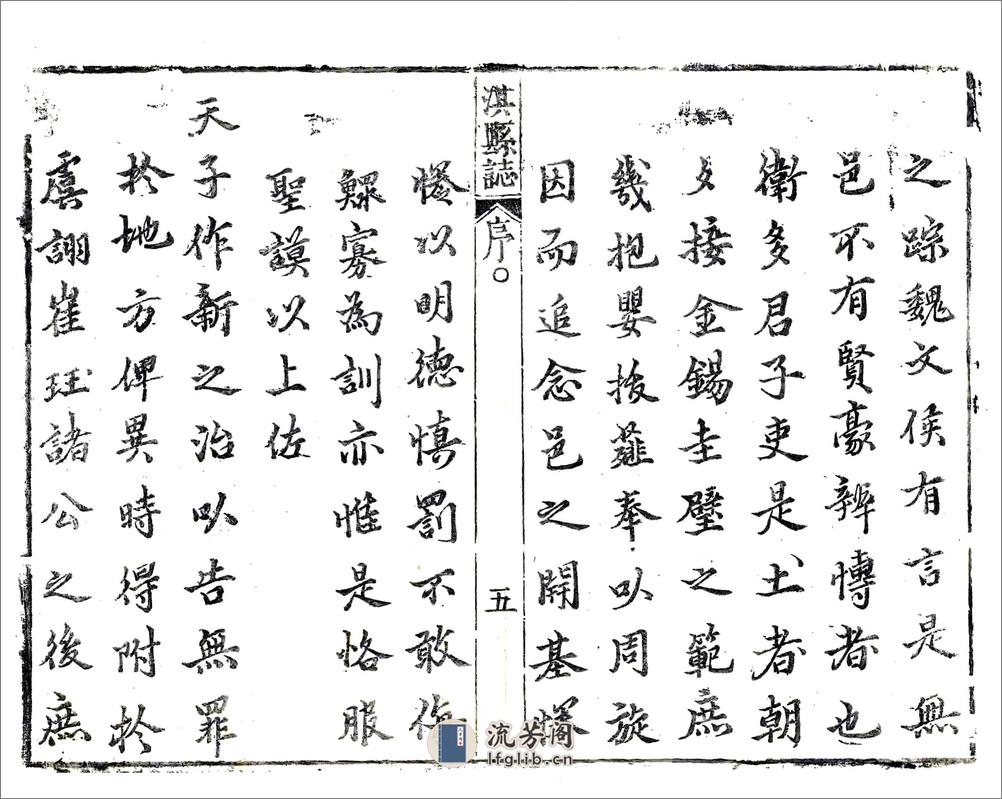 之踪魏文侯有言是無
邑不有賢豪辨愽者也
衛多君子吏是土者朝
夕接金錫圭璧之範庶
幾抱嬰拔薤奉以周旋
因而追念邑之開基惓
淇縣誌 序 五
惓以明德慎罰不敢侮
鰥寡為訓亦惟是恪服
聖謨以上佐
天子作新之治以告無罪
於地方俾異時得附於
虞詡崔珏諸公之後庶
流芳阁
lfglib.cn